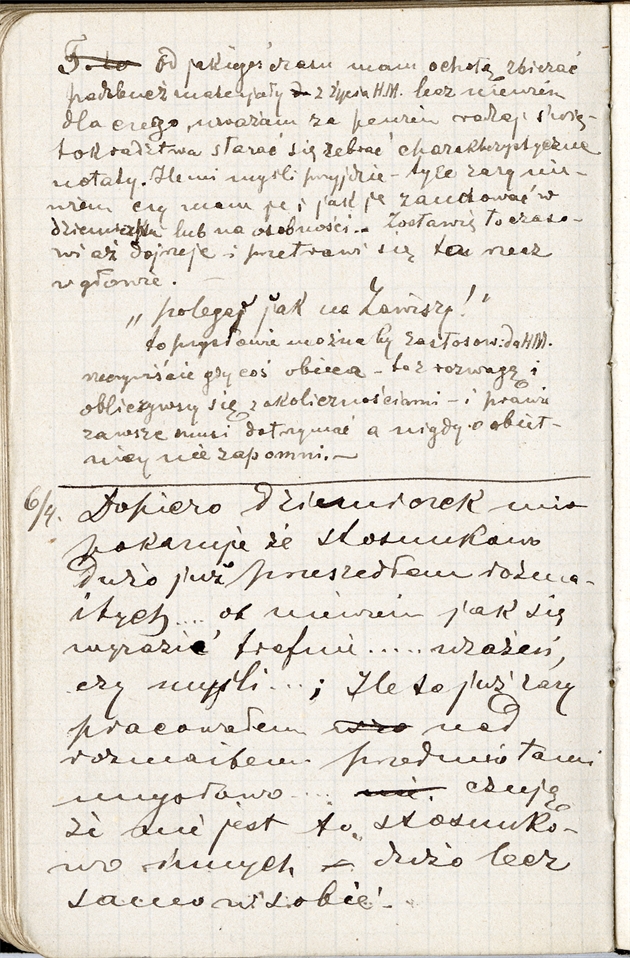 Od jakiegoś czasu mam ochotę zbierać
materjały z życia H.M. lecz niewiem
dla czego, uważam za pewien rodzaj świę-
tokradztwa starać się zebrać charakterystyczne
notaty. Ile mi myśli przyjdzie – tyle razy nie-
wiem czy mam je i jak je zanotować w
dzienniczku lub na osobności. – Zostawię to czaso-
wi aż dojrzeje – i przetrawi się ta rzecz
w głowie. –
„polegaj jak na Zawiszy!"
to przysłowie możnaby zastosow: do H.M.
rzeczywiście gdy coś obieca – to z rozwagą i
obliczywszy się z okolicznościami – i prawie
zawsze musi dotrzymać a nigdy o obiet-
nicy nie zapomni. –
6/4. Dopiero dzienniczek mi
pokazuje że stosunkowo
Dużo już przeszedłem rozma-
itych.... ot niewiem jak się
wyrazić trafnie..... wrażeń,
czy myśli...; Ile to już razy
pracowałem nad
rozmaitemi przedmiotami
umysłowo.... czuję
że nie jest to „stosunko-
wo innych – dużo lecz
samo w sobie. –